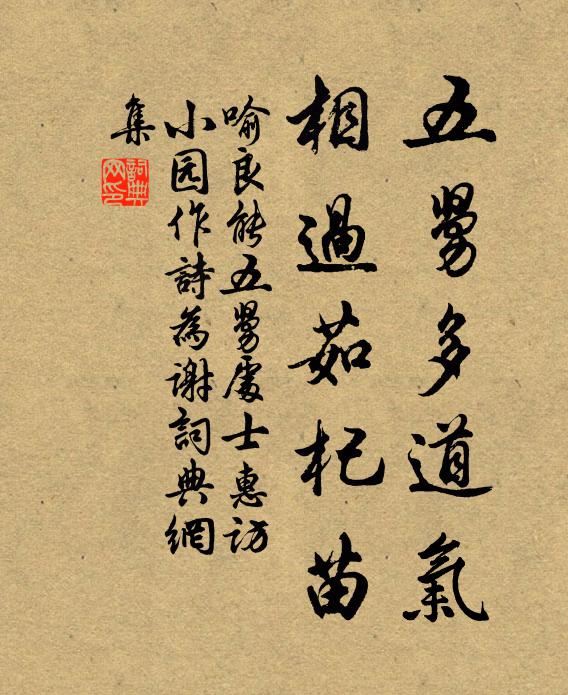 五舅多道氣
相過茹杞苗
喻良能五舅處士惠访
小园作詩為謝詞典網
集
詞典网印